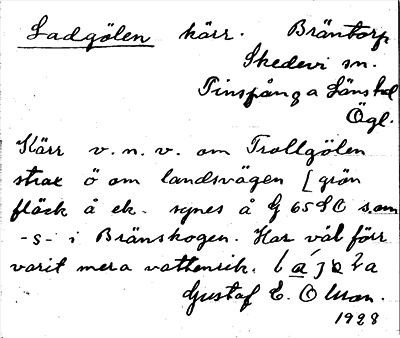 Ladgölen kärr. Bräntorp
Skedevi sn.
Finspånga Länshd
Ögl.
Kärr v. n. v. om Trollgölen
strax ö om landsvägen [grön
fläck å ek. synes å G 65 SO som
-s- i Bränskogen. Har väl förr
varit mera vattenrik.
Gustaf E. Olsson.
1928